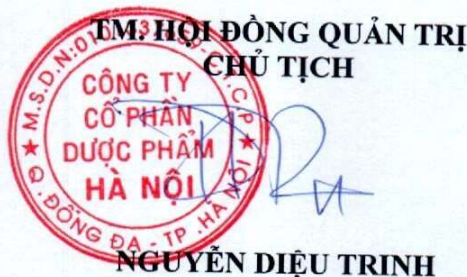 TM. HỘI ĐỒNG QUẢN TRỊ
CHỦ TỊCH
CÔNG TY
CỔ PHẦN
DƯỢC PHẨM
HÀ NỘI
Q. ĐỐNG ĐA - TP. HÀ NỘI
NGUYỄN DIỆU TRINH